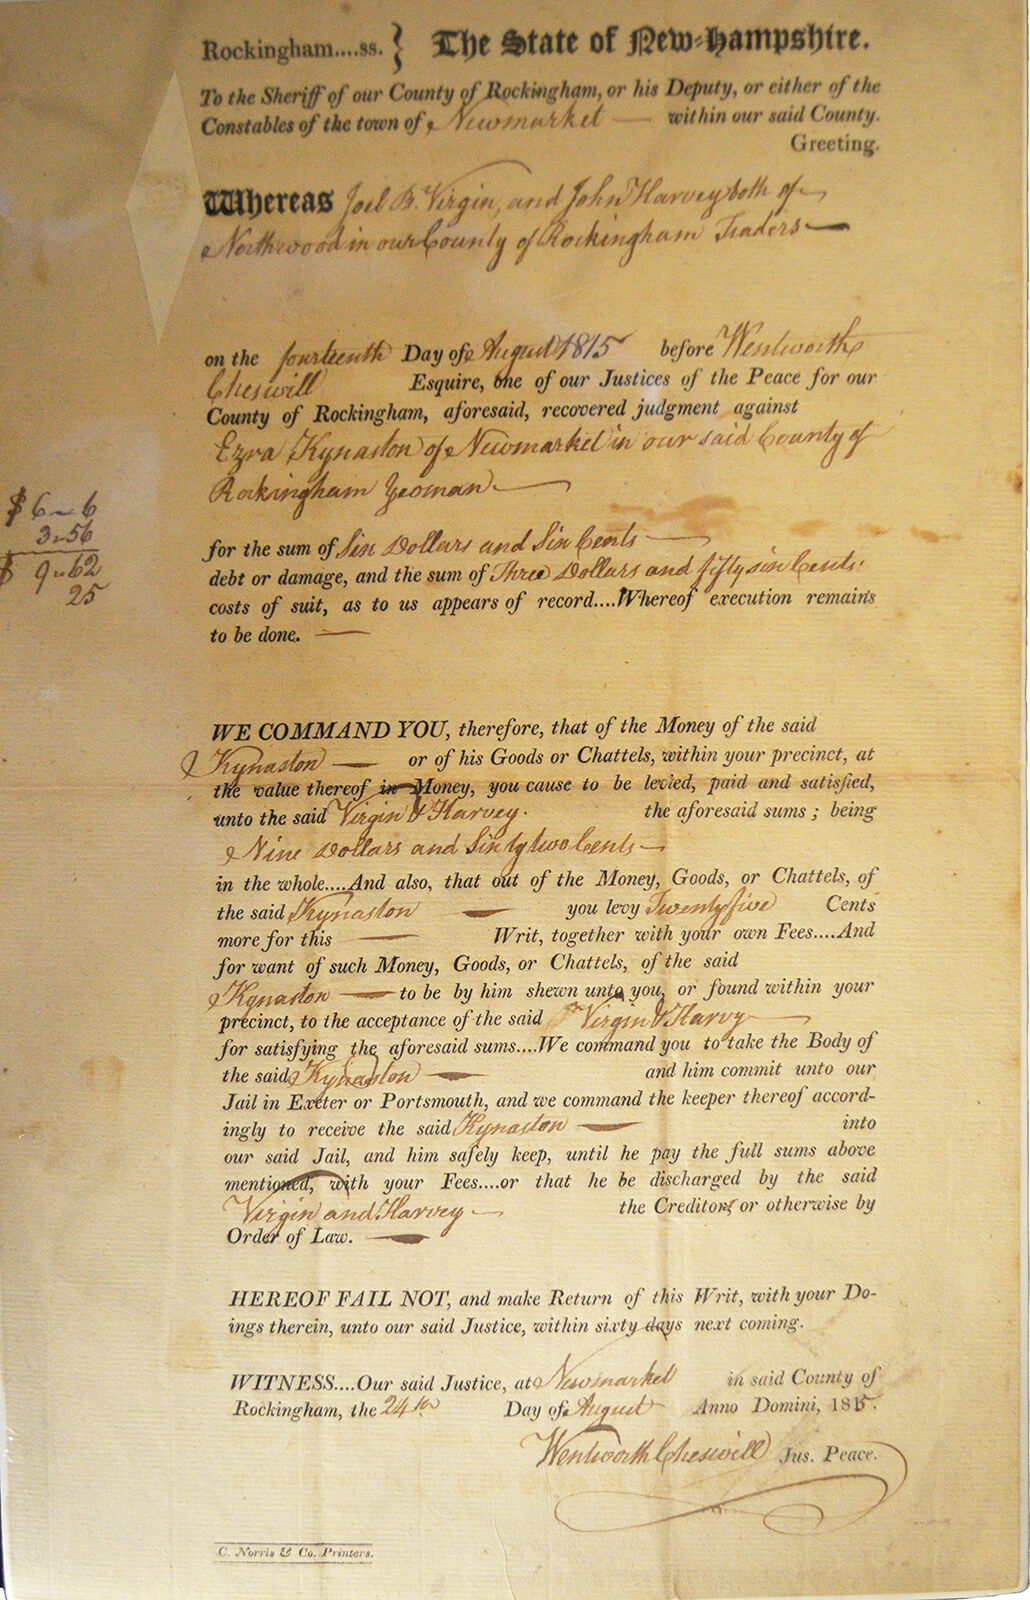 Rockingham....ss. } The State of New-Hampshire.
To the Sheriff of our County of Rockingham, or his Deputy, or either of the
Constables of the town of Newmarket — within our said County.
Greeting.
Whereas Joel B. Virgin, and John Harvey both of
Northwood in our County of Rockingham Traders —
on the fourteenth Day of August 1815 before Wentworth
Cheswill Esquire, one of our Justices of the Peace for our
County of Rockingham, aforesaid, recovered judgment against
Ezra Kynaston of Newmarket in our said County of
Rockingham Yeoman. —
$ 6 - 6
3 - 56
$ 9 - 62
25
for the sum of Six Dollars and Six Cents —
debt or damage, and the sum of Three Dollars and fifty six Cents.
costs of suit, as to us appears of record....Whereof execution remains
to be done. —
WE COMMAND YOU, therefore, that of the Money of the said
Kynaston — or of his Goods or Chattels, within your precinct, at
the value thereof in Money, you cause to be levied, paid and satisfied,
unto the said Virgin & Harvey. the aforesaid sums ; being
Nine Dollars and Sixty two Cents —
in the whole....And also, that out of the Money, Goods, or Chattels, of
the said Kynaston — you levy Twenty five Cents
more for this — Writ, together with your own Fees....And
for want of such Money, Goods, or Chattels, of the said
Kynaston — to be by him shewn unto you, or found within your
precinct, to the acceptance of the said Virgin & Harvy —
for satisfying the aforesaid sums....We command you to take the Body of
the said Kynaston — and him commit unto our
Jail in Exeter or Portsmouth, and we command the keeper thereof accord-
ingly to receive the said Kynaston — into
our said Jail, and him safely keep, until he pay the full sums above
mentioned, with your Fees....or that he be discharged by the said
Virgin and Harvey — the Creditors or otherwise by
Order of Law. —
HEREOF FAIL NOT, and make Return of this Writ, with your Do-
ings therein, unto our said Justice, within sixty days next coming.
WITNESS....Our said Justice, at Newmarket in said County of
Rockingham, the 24th Day of August Anno Domini, 1815.
Wentworth Cheswill Jus. Peace.
C. Norris & Co. Printers.